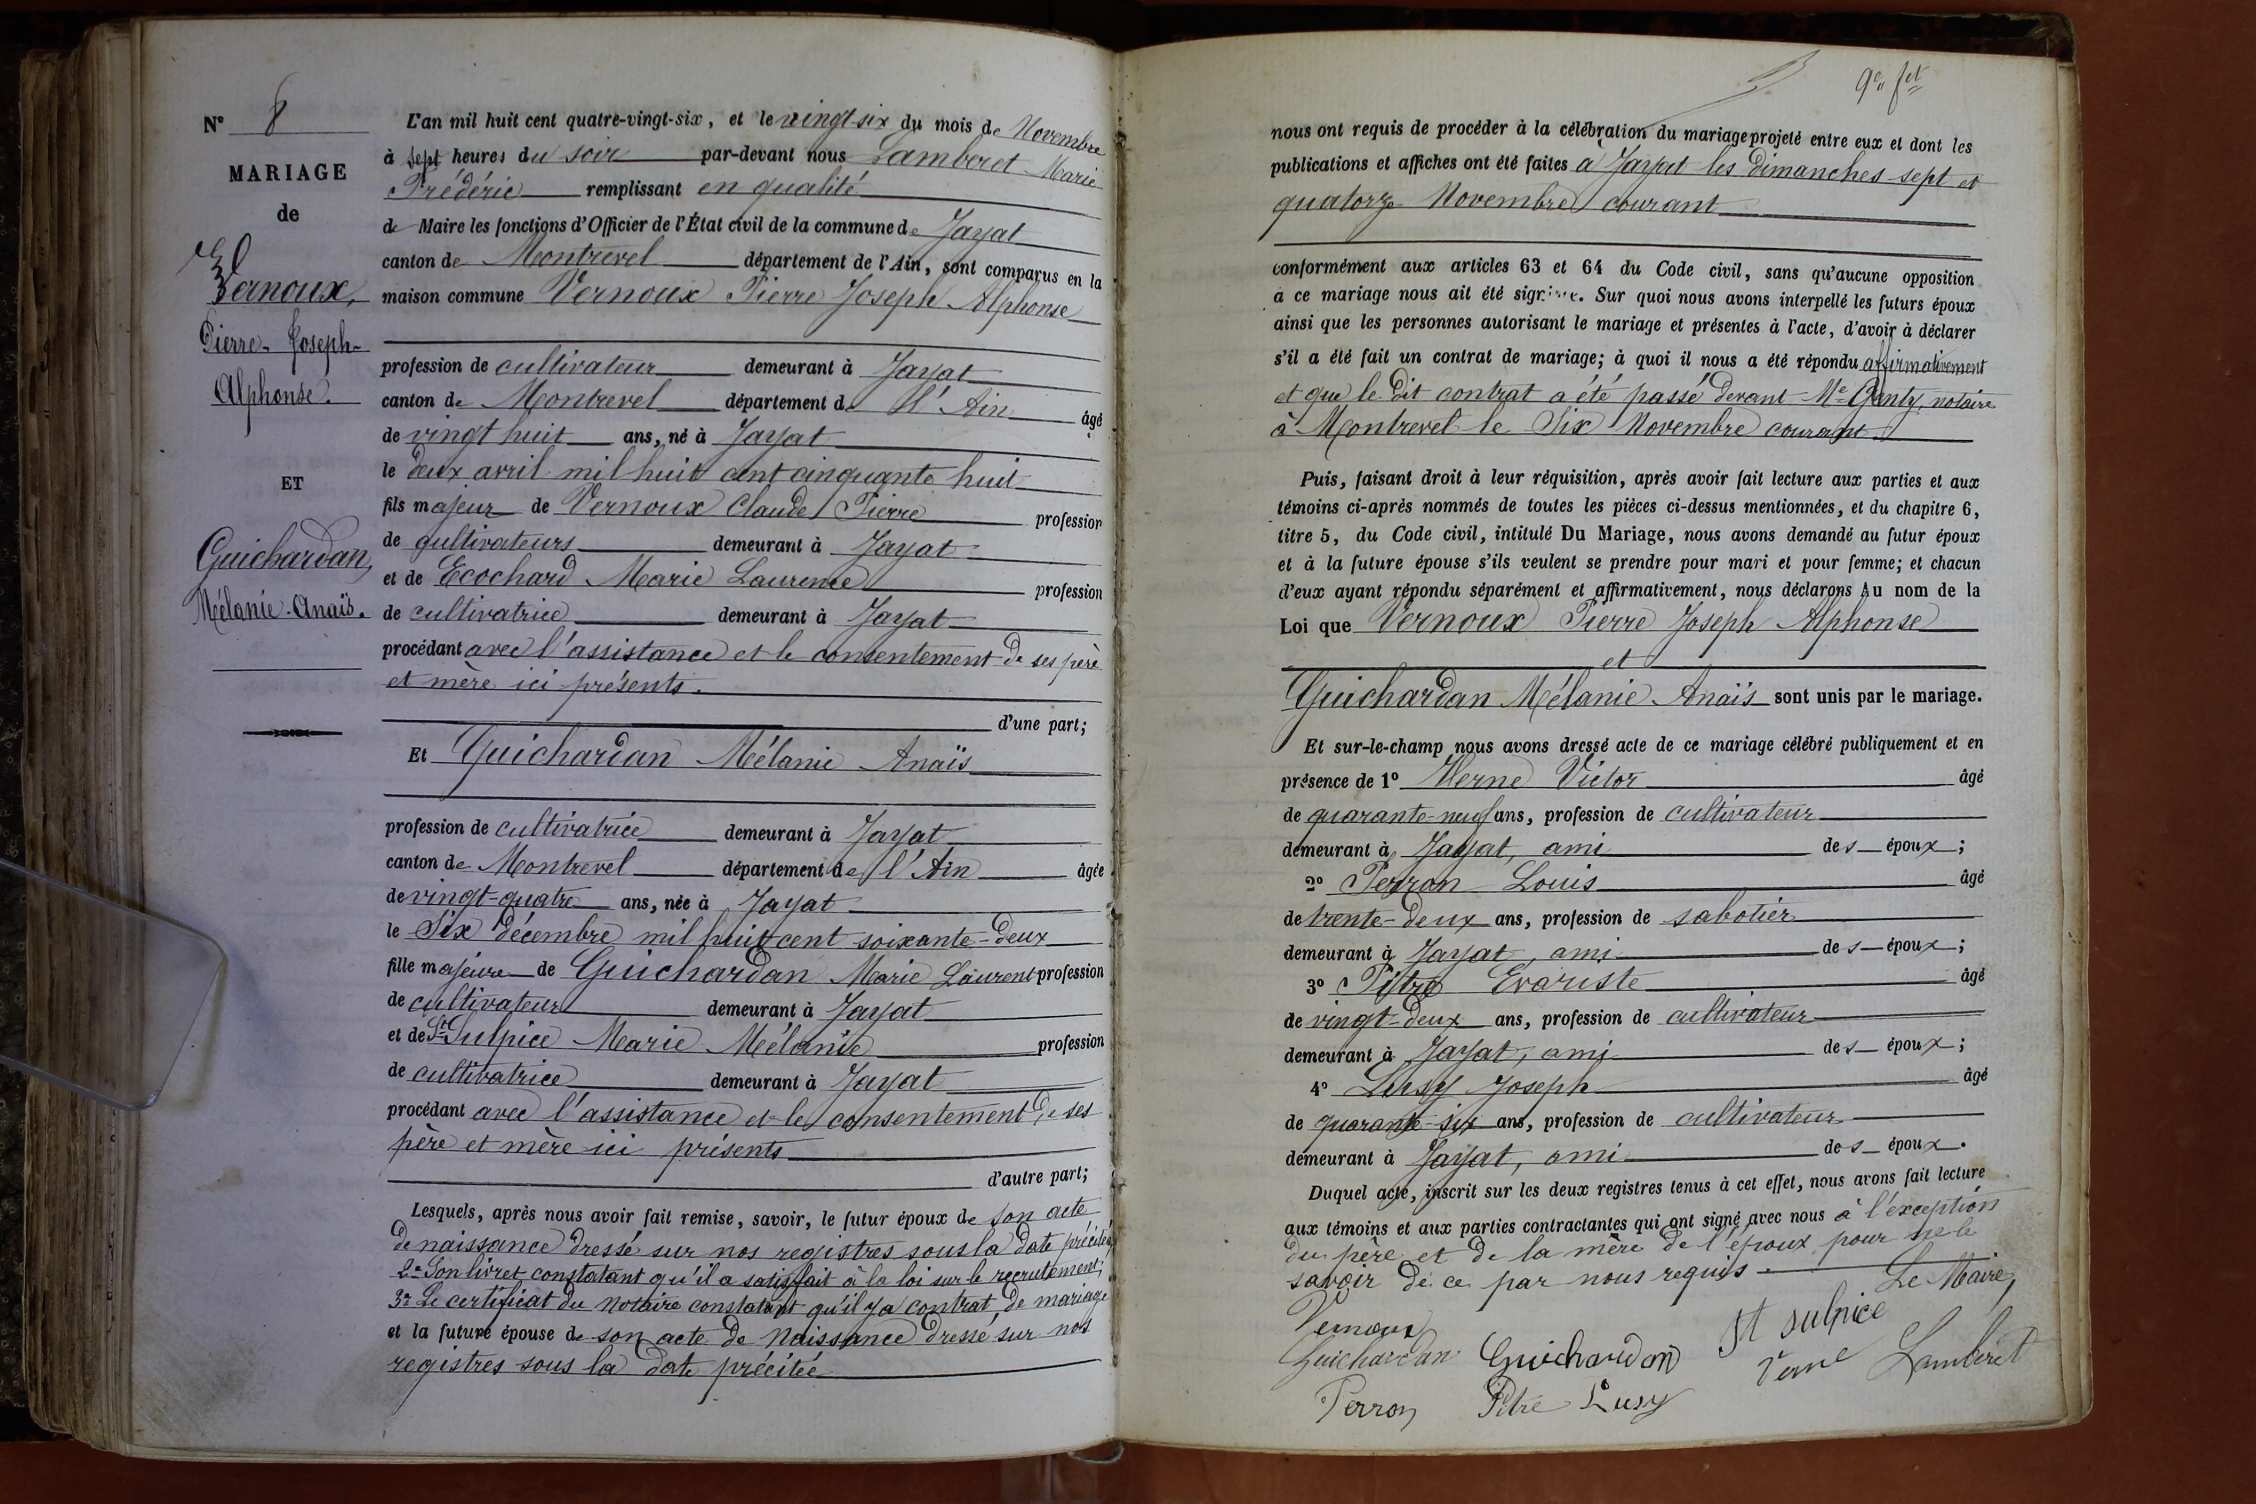 N° 8
MARIAGE
de
Vernoux,
Pierre-Joseph-
Alphonse.
ET
Guichardan,
Mélanie-Anaïs.
L'an mil huit cent quatre-vingt-six, et le vingt-six du mois de Novembre
à sept heures du soir par-devant nous Lamberet Marie
Frédéric remplissant en qualité
de Maire les fonctions d'Officier de l'État civil de la commune de Jayat
canton de Montrevel département de l'Ain, sont comparus en la
maison commune Vernoux Pierre Joseph Alphonse
profession de cultivateur demeurant à Jayat
canton de Montrevel département de l'Ain âgé
de vingt huit ans, né à Jayat
le deux avril mil huit cent cinquante huit
fils majeur de Vernoux Claude Pierre profession
de cultivateurs demeurant à Jayat
et de Ecochard Marie Laurence profession
de cultivatrice demeurant à Jayat
procédant avec l'assistance et le consentement de ses père
et mère ici présents.
d'une part;
Et Guichardan Mélanie Anaïs
profession de cultivatrice demeurant à Jayat
canton de Montrevel département de l'Ain âgée
de vingt-quatre ans, née à Jayat
le Six décembre mil huit cent soixante-deux
fille majeure de Guichardan Marie Laurent profession
de cultivateur demeurant à Jayat
et de St Sulpice Marie Mélanie profession
de cultivatrice demeurant à Jayat
procédant avec l'assistance et le consentement de ses
père et mère ici présents
d'autre part;
Lesquels, après nous avoir fait remise, savoir, le futur époux de son acte
de naissance dressé sur nos registres sous la date précitée,
2° Son livret constatant qu'il a satisfait à la loi sur le recrutement;
3° Le certificat du Notaire constatant qu'il y a contrat de mariage
et la future épouse de son acte de Naissance dressé sur nos
registres sous la date précitée
9e fet
nous ont requis de procéder à la célébration du mariage projeté entre eux et dont les
publications et affiches ont été faites à Jayat les dimanches sept et
quatorze Novembre courant
conformément aux articles 63 et 64 du Code civil, sans qu'aucune opposition
à ce mariage nous ait été signifiée. Sur quoi nous avons interpellé les futurs époux
ainsi que les personnes autorisant le mariage et présentes à l'acte, d'avoir à déclarer
s'il a été fait un contrat de mariage; à quoi il nous a été répondu affirmativement
et que le dit contrat a été passé devant Me Genty, notaire
à Montrevel le Six Novembre courant.
Puis, faisant droit à leur réquisition, après avoir fait lecture aux parties et aux
témoins ci-après nommés de toutes les pièces ci-dessus mentionnées, et du chapitre 6,
titre 5, du Code civil, intitulé Du Mariage, nous avons demandé au futur époux
et à la future épouse s'ils veulent se prendre pour mari et pour femme; et chacun
d'eux ayant répondu séparément et affirmativement, nous déclarons Au nom de la
Loi que Vernoux Pierre Joseph Alphonse
et
Guichardan Mélanie Anaïs sont unis par le mariage.
Et sur-le-champ nous avons dressé acte de ce mariage célébré publiquement et en
présence de 1° Verne Victor âgé
de quarante-neuf ans, profession de cultivateur
demeurant à Jayat, ami des époux;
2° Perron Louis âgé
de trente-deux ans, profession de sabotier
demeurant à Jayat, ami des époux;
3° Pitre Evariste âgé
de vingt-deux ans, profession de cultivateur
demeurant à Jayat, ami des époux;
4° Lusy Joseph âgé
de quarante-six ans, profession de cultivateur
demeurant à Jayat, ami des époux.
Duquel acte, inscrit sur les deux registres tenus à cet effet, nous avons fait lecture
aux témoins et aux parties contractantes qui ont signé avec nous à l'exception
du père et de la mère de l'époux pour ne le
savoir de ce par nous requis. Le Maire,
Vernoux St sulpice
Guichardan Guichardan Verne Lamberet
Perron Pitre Lusy